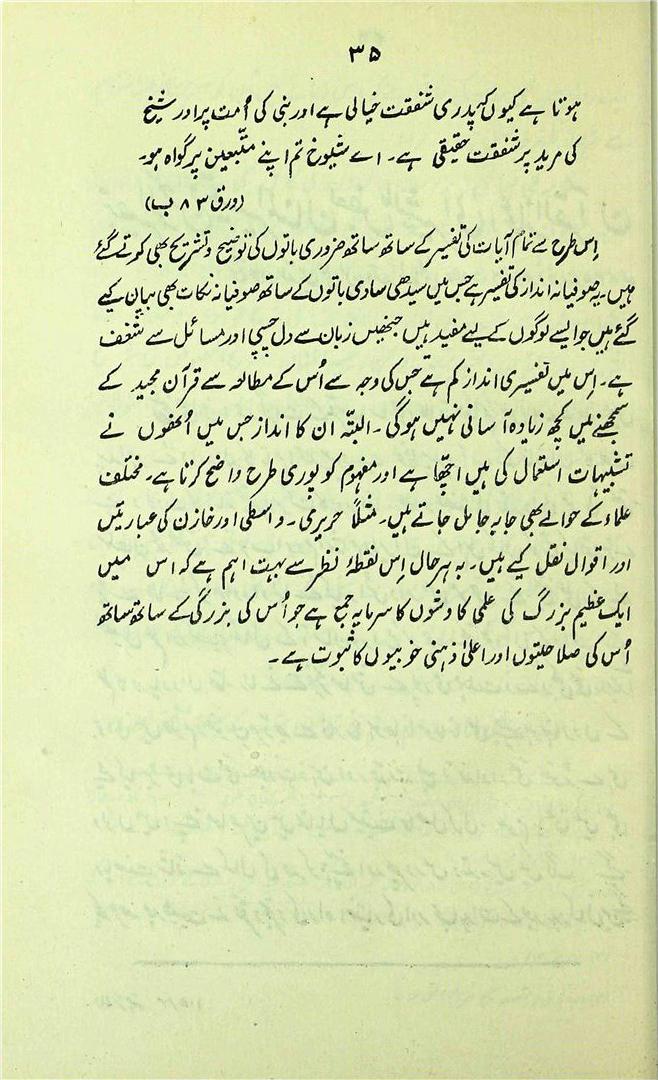 ۳۵
ہوتا ہے کیوں کہ پدری شفقت خیالی ہے اور نبی کی اُمت پر اور شیخ
کی مرید پر شفقت حقیقی ہے۔ اے شیوخ تم اپنے متّبعین پر گواہ ہو۔
(ورق ۸۳ ب)
اِس طرح سے تمام آیات کی تفسیر کے ساتھ ساتھ ضروری باتوں کی توضیح و تشریح بھی کرتے گئے
ہیں۔ یہ صوفیانہ انداز کی تفسیر ہے جس میں سیدھی سادی باتوں کے ساتھ صوفیانہ نکات بھی بیان کیے
گئے ہیں جو ایسے لوگوں کے لیے مفید ہیں جنھیں زبان سے دل چسپی اور مسائل سے شغف
ہے۔ اِس میں تفسیری انداز کم ہے جس کی وجہ سے اُس کے مطالعہ سے قرآن مجید کے
سمجھنے میں کچھ زیادہ آسانی نہیں ہوگی۔ البتّہ ان کا انداز جس میں اُنھوں نے
تشبیہات استعمال کی ہیں اچھّا ہے اور مفہوم کو پوری طرح واضح کرتا ہے۔ مختلف
علماء کے حوالے بھی جابہ جا مل جاتے ہیں۔ مثلاً حریری۔ واسطی اور خازن کی عبارتیں
اور اقوال نقل کیے ہیں۔ بہ ہر حال اِس نقطۂ نظر سے بہت اہم ہے کہ اس میں
ایک عظیم بزرگ کی علمی کاوشوں کا سرمایہ جمع ہے جو اُس کی بزرگی کے ساتھ ساتھ
اُس کی صلاحیتوں اور اعلیٰ ذہنی خوبیوں کا ثبوت ہے۔